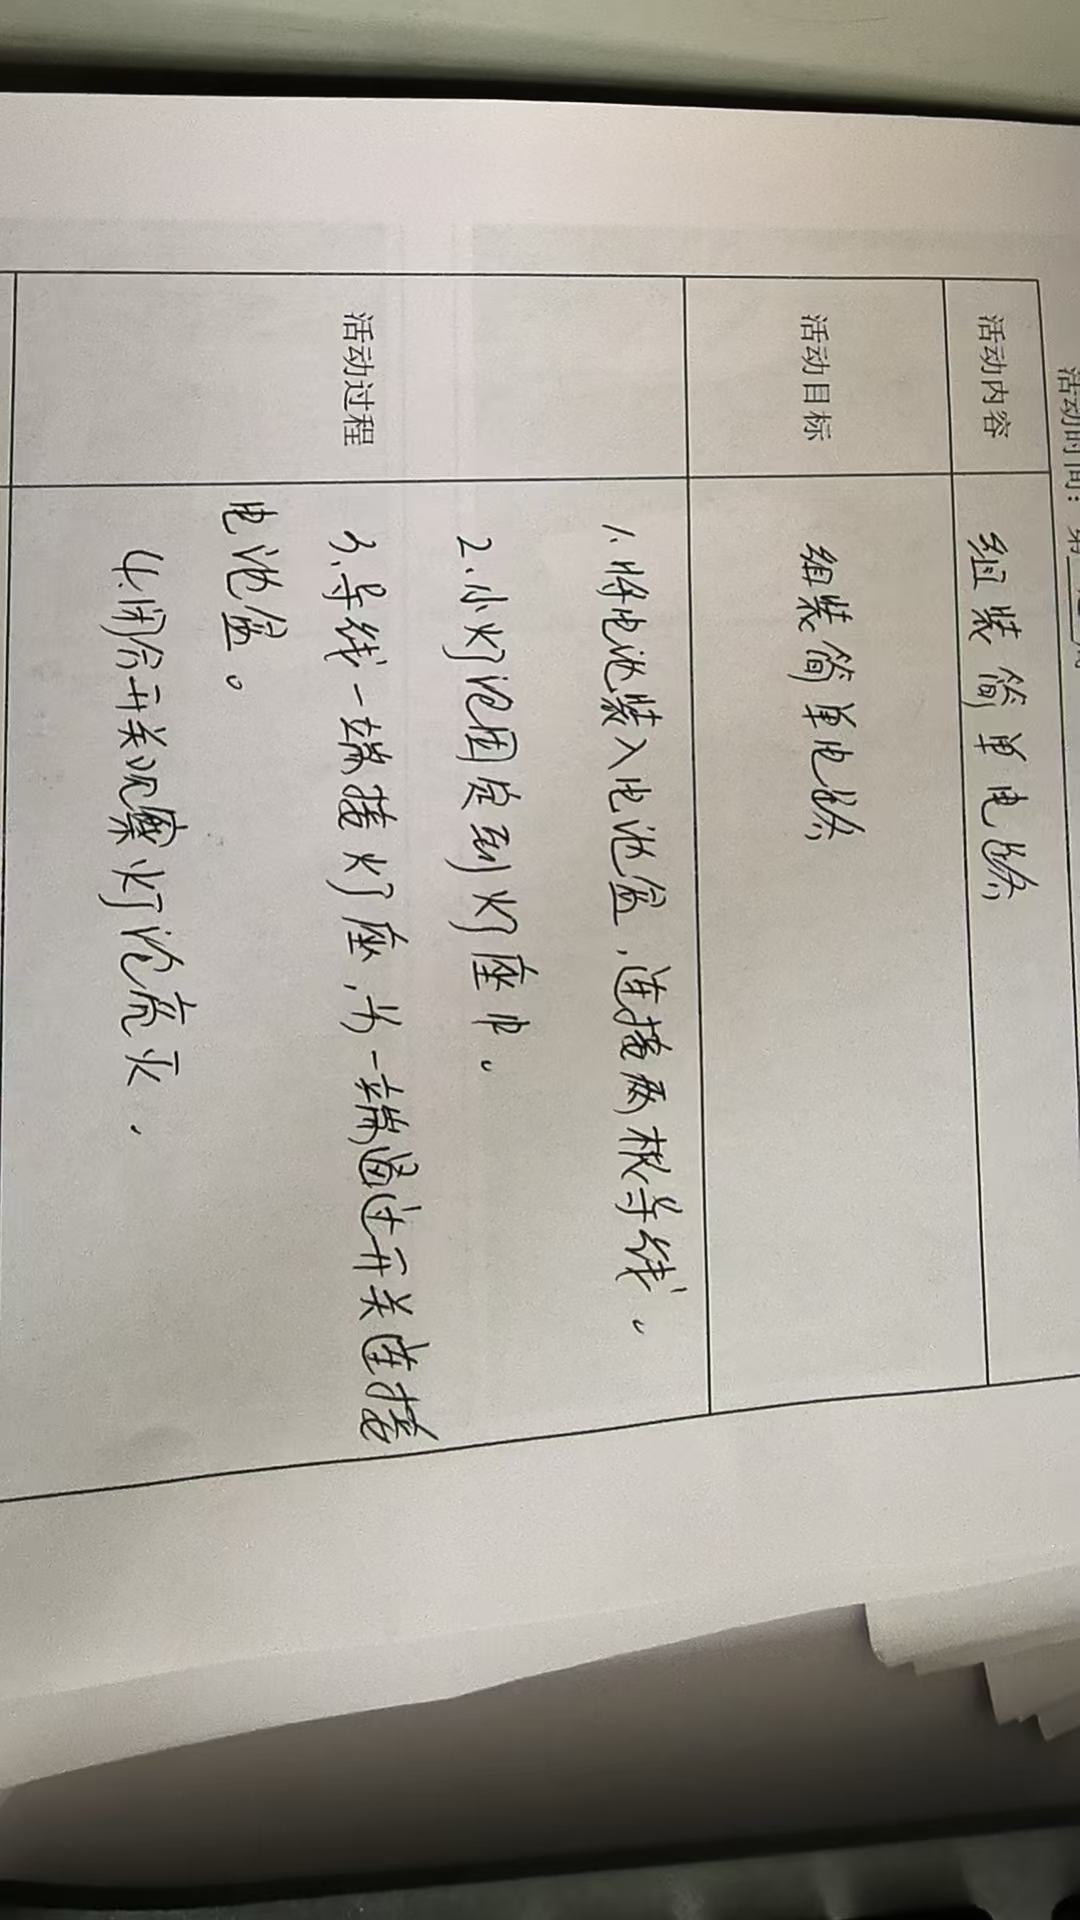 活动时间：第
活动内容 组装简单电路
活动目标 组装简单电路
活动过程
1.将电池装入电池盒，连接两根导线。
2.小灯泡固定到灯座中。
3.导线一端接灯座，另一端通过开关连接
电池盒。
4.闭合开关观察灯泡亮灭.